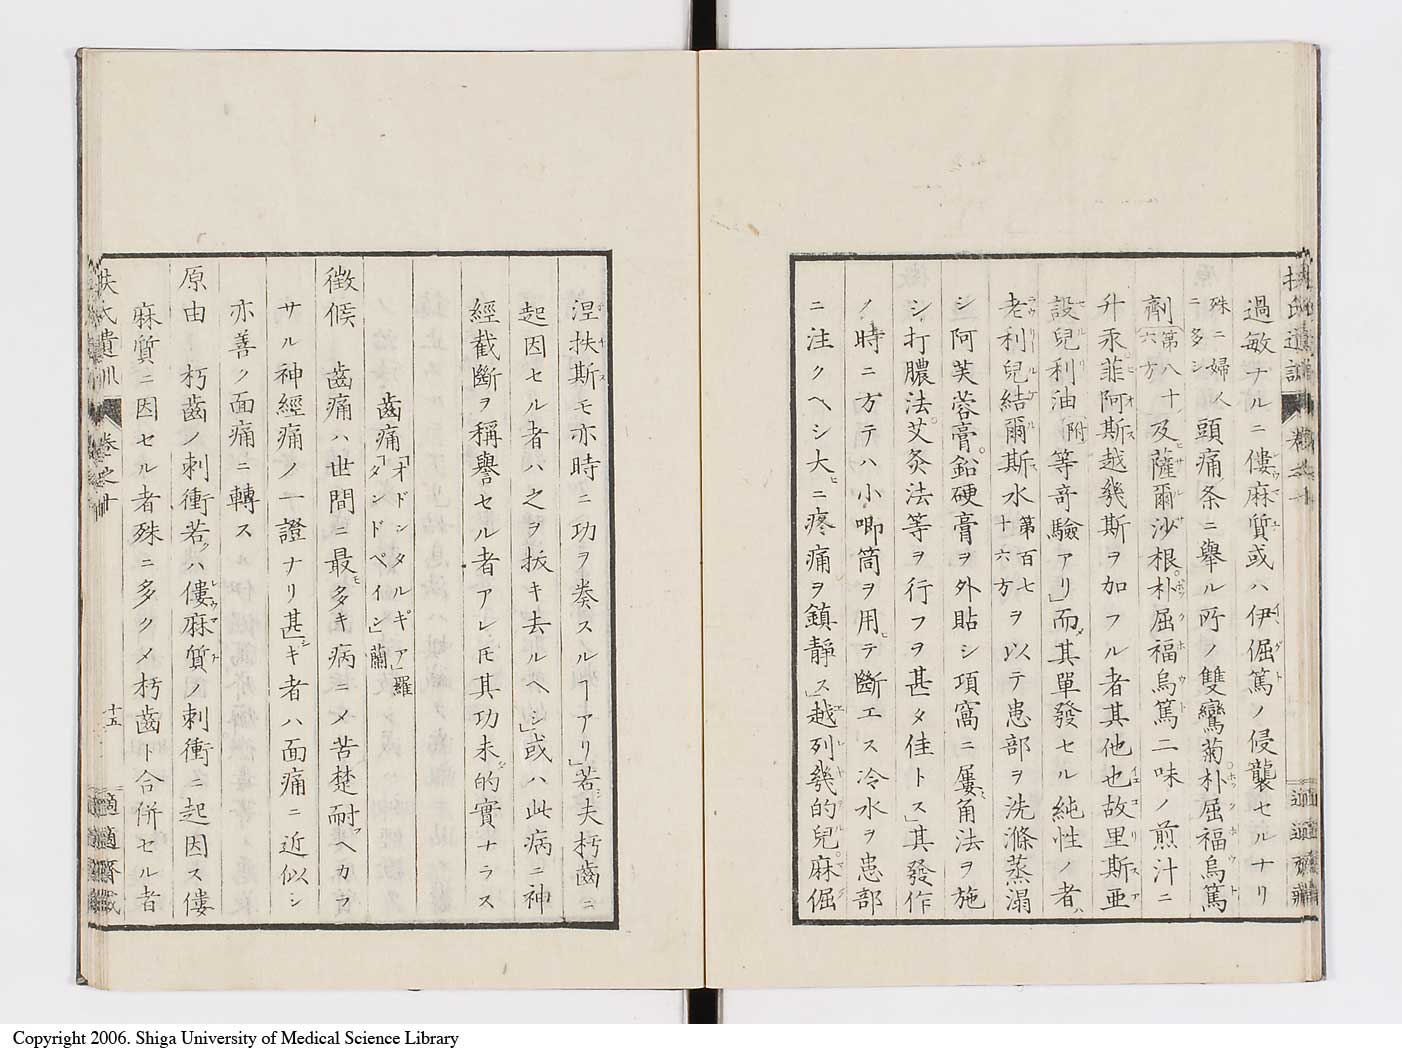 過敏ナルニ僂麻質或ハ伊倔篤ノ侵襲セルナリ
殊ニ婦人ニ多シ頭痛条ニ擧ル所ノ雙鸞菊朴屈福烏篤
劑第八十六方及薩爾沙根朴屈福烏篤二味ノ煎汁ニ
升汞菲阿斯越幾斯ヲ加フル者其他也故里斯亜
設兒利油附等奇驗アリ」而其單發セル純性ノ者ハ
老利兒結爾斯水第百七十六方ヲ以テ患部ヲ洗滌蒸溻
シ阿芙蓉膏鉛硬膏ヲ外貼シ項窩ニ屢角法ヲ施
シ打膿法艾灸法等ヲ行フヲ甚タ佳トス」其發作
ノ時ニ方テハ小喞筒ヲ用テ斷エス冷水ヲ患部
ニ注クヘシ大ニ疼痛ヲ鎮靜ス」越列幾的兒麻倔
涅扶斯モ亦時ニ功ヲ奏スルヿアリ」若夫朽齒ニ
起因セル者ハ之ヲ抜キ去ルヘシ」或ハ此病ニ神
經截斷ヲ稱譽セル者アレ𪜈其功未的實ナラス
齒痛「オドンタルギア」羅「タンドペイン」蘭
徴候 齒痛ハ世間ニ最多キ病ニメ苦楚耐ヘカラ
サル神經痛ノ一證ナリ甚シキ者ハ面痛ニ近似シ
亦善ク面痛ニ轉ス
原由 朽齒ノ刺衝若クハ僂麻質ノ刺衝ニ起因ス僂
麻質ニ因セル者殊ニ多クメ朽齒ト合併セル者
扶氏遺訓 卷之十 十五 適適齋藏
Copyright 2006. Shiga University of Medical Science Library